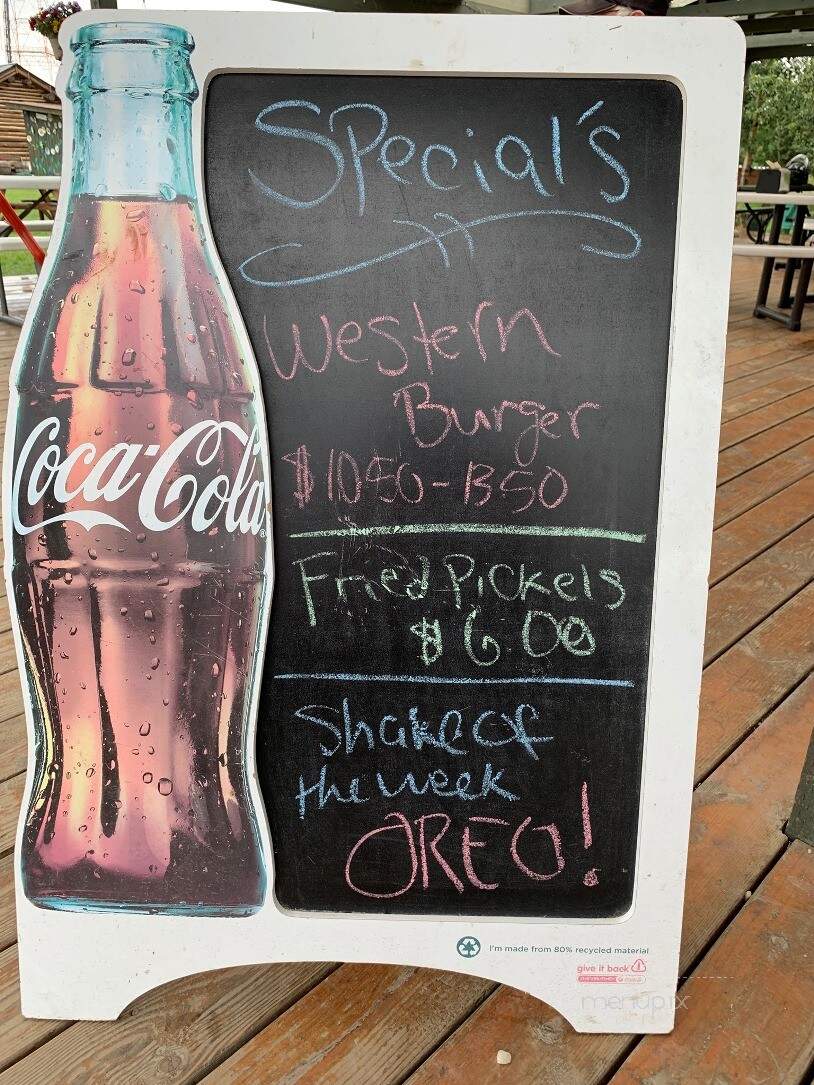 Special's
Western
Burger
$1050-1350
Fried Pickels
$6.00
Shake of
the week
OREO!
Coca-Cola
I'm made from 80% recycled material
give it back
menupix